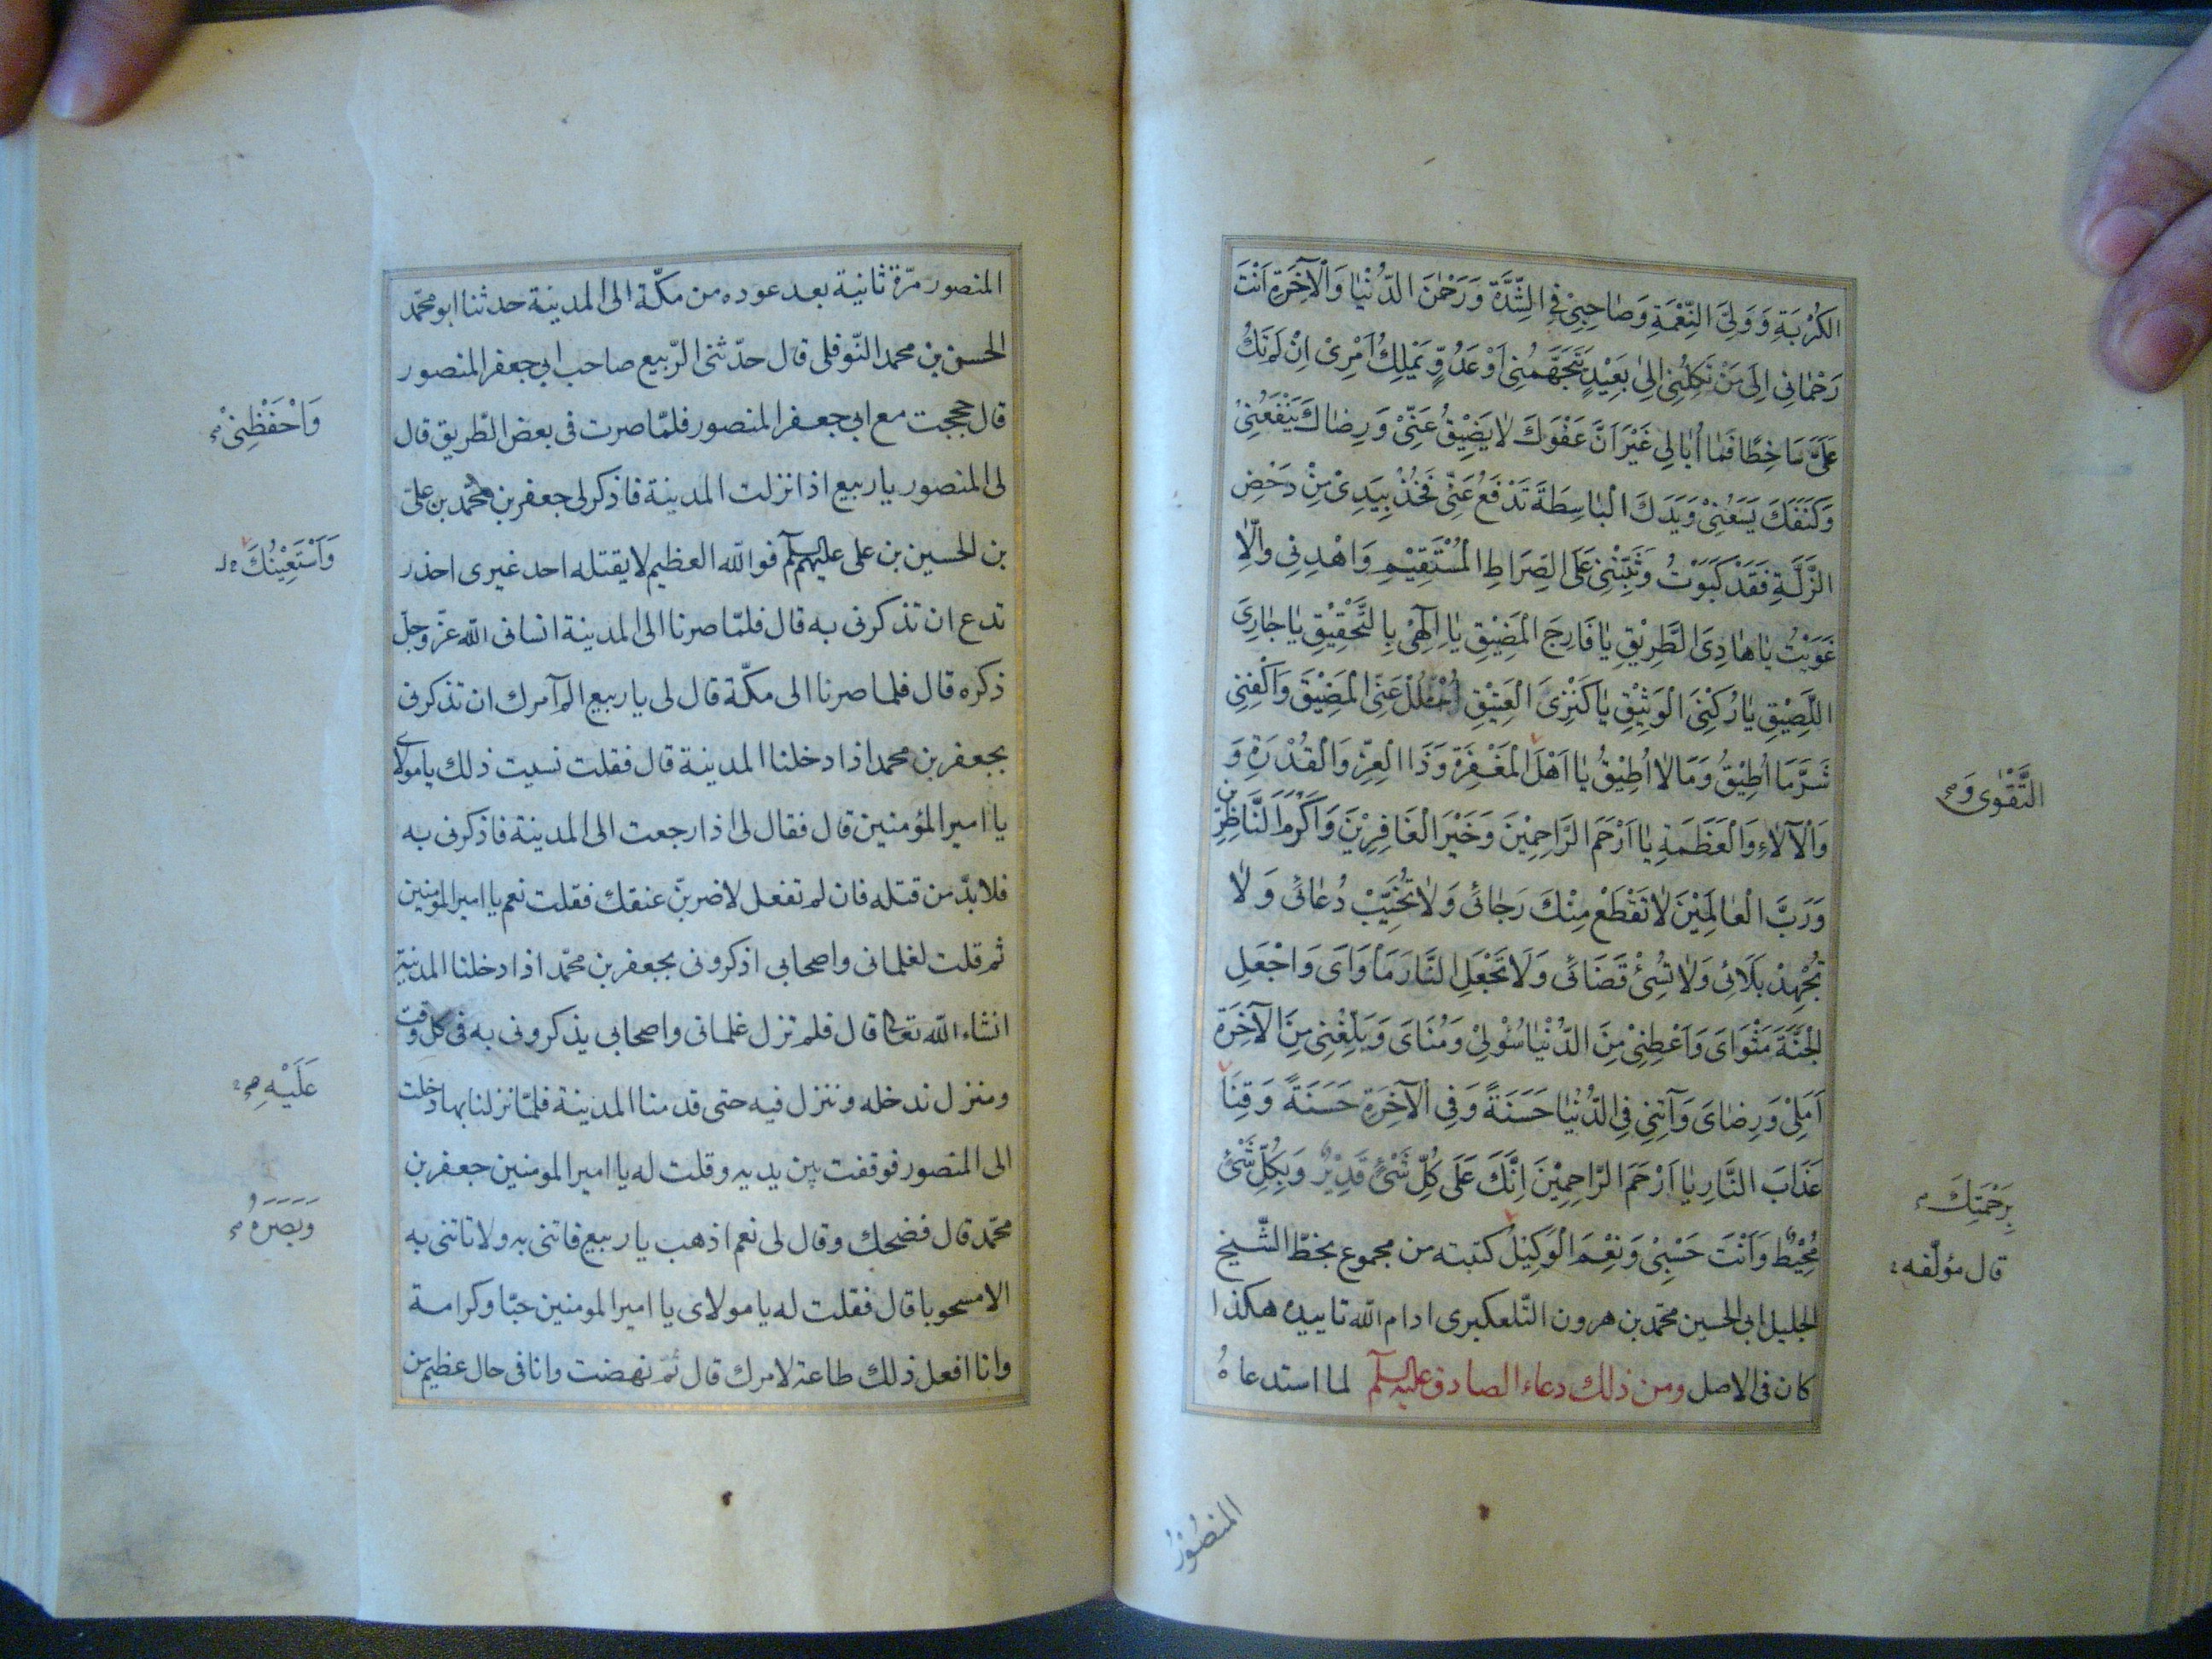 الكُرْبَةِ وَوَلِيَّ النِّعْمَةِ وَصَاحِبِيْ فِي الشِّدَّةِ وَرَحْمٰنَ الدُّنْيَا وَالْآخِرَةِ اَنْتَ
رَحْمَانِي اِلٰى مَنْ تَكِلُنِيْ اِلٰى بَعِيْدٍ يَتَجَهَّمُنِيْ اَوْ عَدُوٍّ يَمْلِكُ اَمْرِيْ اِنْ لَمْ تَكُ
عَلَيَّ سَاخِطًا فَمَا اُبَالِي غَيْرَ اَنَّ عَفْوَكَ لَا يَضِيْقُ عَنِّيْ وَرِضَاكَ يَنْفَعُنِيْ
وَكَنَفَكَ يَسَعُنِيْ وَيَدَكَ الْبَاسِطَةَ تَدْفَعُ عَنِّيْ فَخُذْ بِيَدِيْ مِنْ دَحْضِ
الزَّلَّةِ فَقَدْ كَبَوْتُ وَثَبِّتْنِيْ عَلَى الصِّرَاطِ الْمُسْتَقِيْمِ وَاهْدِنِي وَاِلَّا
غَوَيْتُ يَا هَادِيَ الطَّرِيْقِ يَا فَارِجَ الْمَضِيْقِ يَا اِلٰهِيْ بِالتَّحْقِيْقِ يَا جَارِيَ
اللَّصِيْقِ يَا رُكْنِيَ الْوَثِيْقِ يَا كَنْزِيَ الْعَتِيْقِ احْلُلْ عَنِّي الْمَضِيْقَ وَاكْفِنِي
شَرَّ مَا اُطِيْقُ وَمَا لَا اُطِيْقُ يَا اَهْلَ الْمَغْفِرَةِ وَذَا الْعِزِّ وَالْقُدْرَةِ وَ
التَّقْوٰى وَ
وَالْآلَاءِ وَالْعَظَمَةِ يَا اَرْحَمَ الرَّاحِمِيْنَ وَخَيْرَ الْغَافِرِيْنَ وَاَكْرَمَ النَّاظِرِيْنَ
وَرَبَّ الْعَالَمِيْنَ لَا تَقْطَعْ مِنْكَ رَجَائِيْ وَلَا تُخَيِّبْ دُعَائِيْ وَلَا
تُجْهِدْ بَلَائِي وَلَا تُسِئْ قَضَائِي وَلَا تَجْعَلِ النَّارَ مَأْوَايَ وَاجْعَلِ
الْجَنَّةَ مَثْوَايَ وَاَعْطِنِيْ مِنَ الدُّنْيَا سُؤْلِيْ وَمُنَايَ وَبَلِّغْنِي مِنَ الْآخِرَةِ
اَمَلِيْ وَرِضَايَ وَآتِنِي فِي الدُّنْيَا حَسَنَةً وَفِي الْآخِرَةِ حَسَنَةً وَقِنَا
عَذَابَ النَّارِ يَا اَرْحَمَ الرَّاحِمِيْنَ اِنَّكَ عَلٰى كُلِّ شَيْءٍ قَدِيْرٌ وَبِكُلِّ شَيْءٍ
بِرَحْمَتِكَ
مُحِيْطٌ وَاَنْتَ حَسْبِيْ وَنِعْمَ الْوَكِيْلُ كتبته من مجموع بخطّ الشّيخ
قال مؤلّفه
الجليل ابي الحسين محمّد بن هرون التّلعكبرى ادام الله تاييده هكذا
كان فى الاصل ومن ذلك دعاء الصادق عليه السلم لما استدعاهُ
المنصُوْرُ
المنصور مرّة ثانية بعد عوده من مكّة الى المدينة حدثنا ابو محمّد
الحسن بن محمد النّوفلى قال حدّثنى الرّبيع صاحب ابي جعفر المنصور
قال حججت مع ابي جعفر المنصور فلمّا صرت فى بعض الطّريق قال
وَاحْفَظْنِيْ
لى المنصور يا ربيع اذا نزلت المدينة فاذكر لى جعفر بن محمّد بن علىّ
بن الحسين بن على عليهم السلم فوالله العظيم لا يقتله احد غيرى احذر
وَاَسْتَعِيْنُكَ
تدع ان تذكرنى به قال فلمّا صرنا الى المدينة انسانى الله عزّ وجلّ
ذكره قال فلما صرنا الى مكّة قال لى يا ربيع الم آمرك ان تذكرنى
بجعفر بن محمد اذا دخلنا المدينة قال فقلت نسيت ذلك يا مولاى
يا امير المؤمنين قال فقال لى اذا رجعت الى المدينة فاذكرنى به
فلا بدّ من قتله فان لم تفعل لاضربنّ عنقك فقلت نعم يا امير المومنين
ثم قلت لغلمانى واصحابي اذكرونى بجعفر بن محمّد اذا دخلنا المدينة
انشاء الله تعالى قال فلم تزل غلمانى واصحابي يذكرونى به فى كل وقت
ومنزل ندخله وننزل فيه حتى قدمنا المدينة فلمّا نزلنا بها دخلت
عَلَيْهِ
الى المنصور فوقفت بين يديه وقلت له يا امير المومنين جعفر بن
محمّد قال فضحك وقال لى نعم اذهب يا ربيع فاتنى به ولا تاتنى به
وَبَصَرَهُ
الا مسحوبا قال فقلت له يا مولاى يا امير المومنين حبّا وكرامة
وانا افعل ذلك طاعة لامرك قال ثمّ نهضت وانا فى حال عظيم من